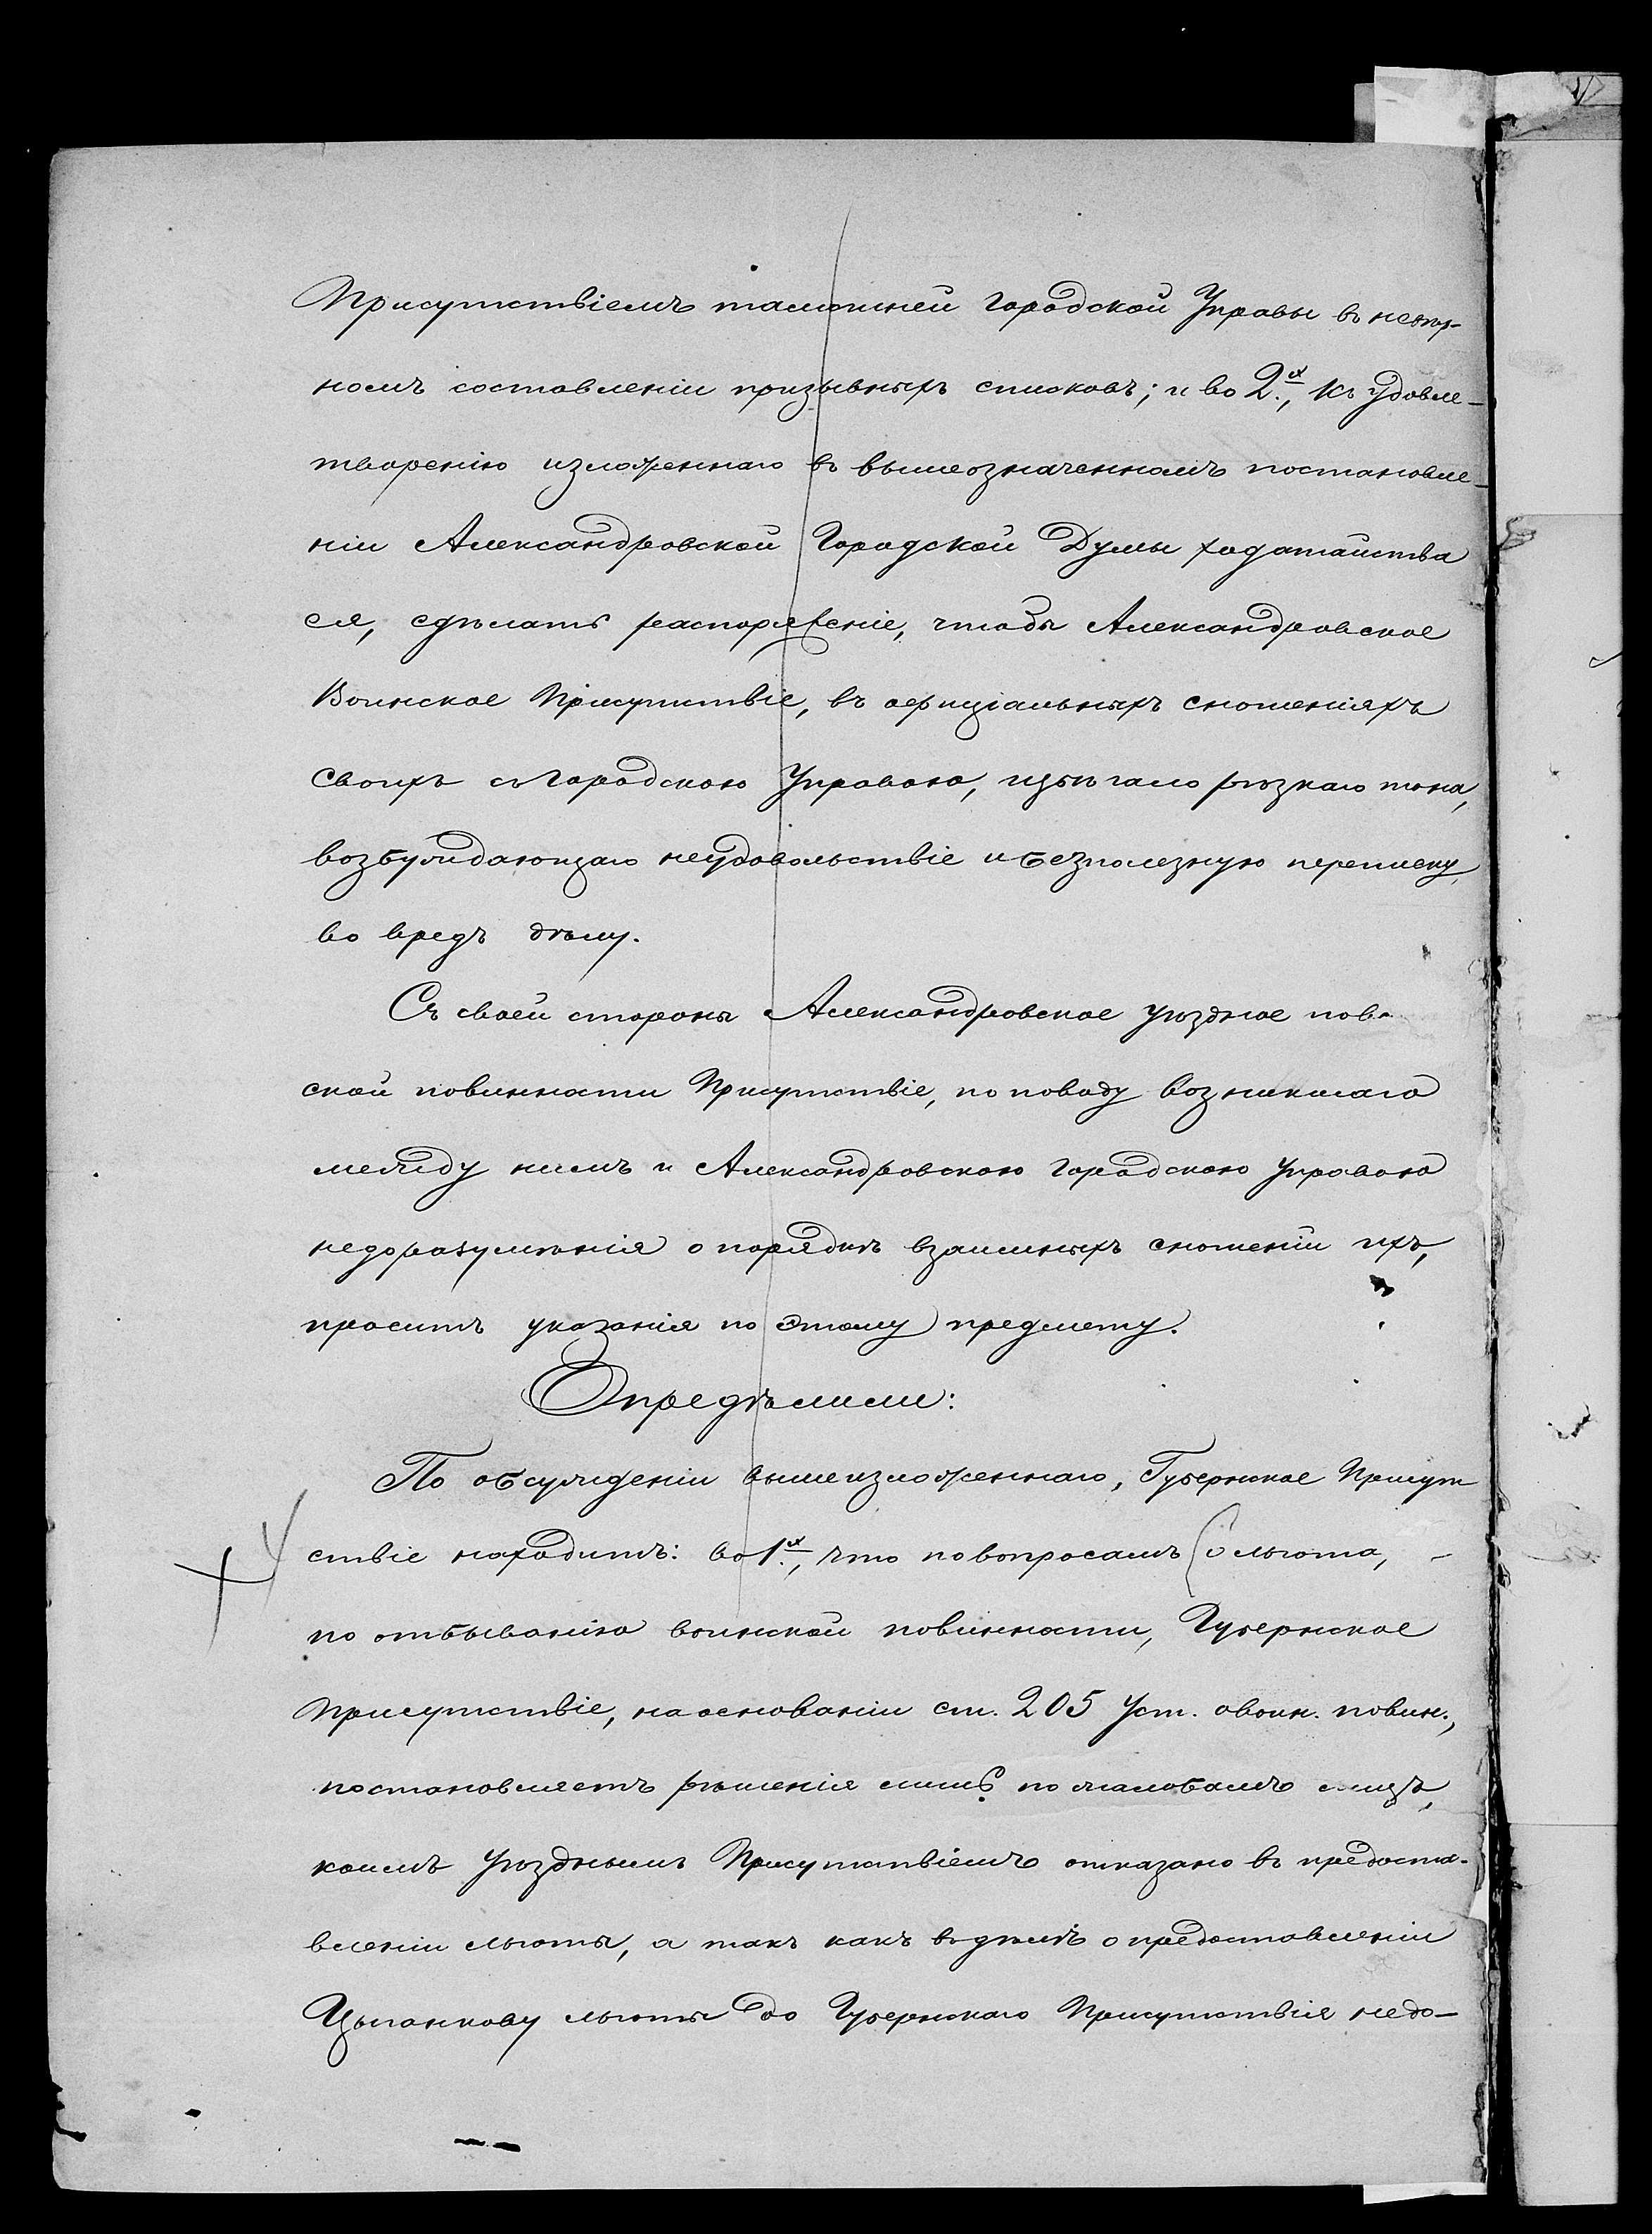 Присутствіемъ тамошней Городской Управы въ невѣр-
номъ составленіи призывныхъ списковъ; и во 2.х, къ удовле-
творенію изложеннаго въ вышеозначенномъ постановле-
ніи Александровской Городской Думы ходатайства
ея, сдѣлать распоряженіе, чтобы Александровское
Воинское Присутствіе, въ офиціальныхъ сношеніяхъ
своихъ съ Городскою Управою, избѣгало рѣзкаго тона,
возбуждающаго неудовольствіе и безполезную переписку,
во вредъ дѣлу.
Съ своей стороны Александровское уѣздное по в
ской повинности Присутствіе, по поводу возникшаго
между нимъ и Александровскою Городскою Управою
недоразумѣнія о порядкѣ взаимныхъ сношеній ихъ,
проситъ указанія по этому предмету.
Опредѣлили:
По обсужденіи вышеизложеннаго, Губернское Присут
ствіе находитъ: во 1.х, что по вопросамъ о льготѣ,
по отбыванію воинской повинности, Губернское
Присутствіе, на основаніи ст. 205 Уст. о воин. повин.,
постановляетъ рѣшенія лишь по жалобамъ лицъ,
коимъ уѣзднымъ Присутствіемъ отказано въ предоста-
вленіи льготы, а такъ какъ въ дѣлѣ о предоставленіи
Цыганкову льготы до Губернскаго Присутствія не до-